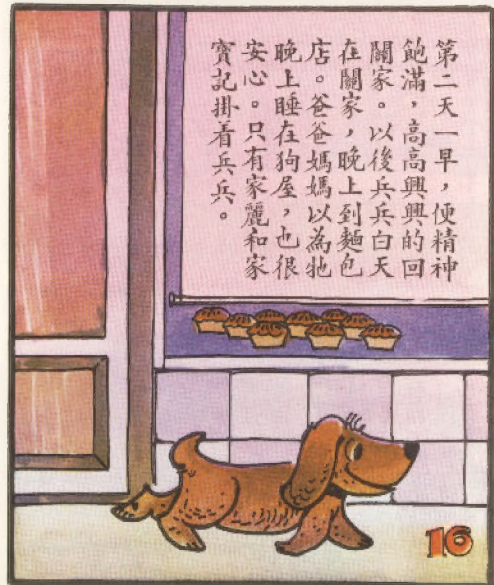 第二天一早，便精神
飽滿，高高興興的回
關家。以後兵兵白天
在關家，晚上到麵包
店。爸爸媽媽以為牠
晚上睡在狗屋，也很
安心。只有家麗和家
寶記掛着兵兵。
16